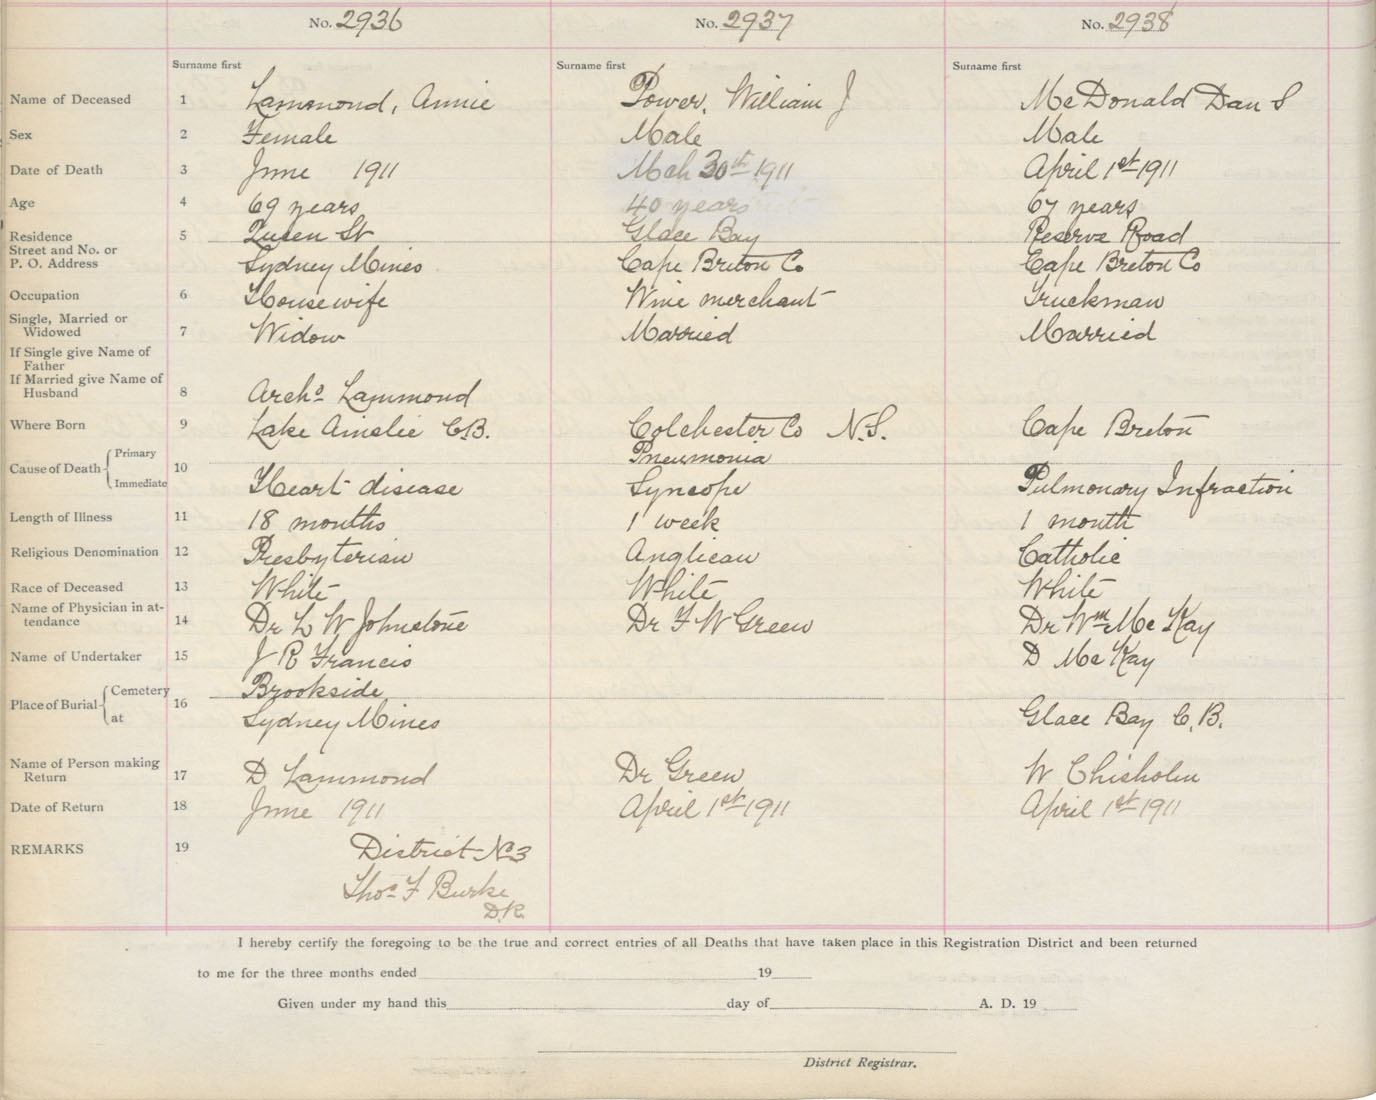 No. 2936 No. 2937 No. 2938
Surname first Surname first Surname first
Name of Deceased 1 Lammond, Annie Power, William J McDonald Dan S
Sex 2 Female Male Male
Date of Death 3 June 1911 Mch 30th 1911 April 1st 1911
Age 4 69 years 40 years 67 years
Residence 5 Queen St Glace Bay Reserve Road
Street and No. or
P. O. Address Sydney Mines Cape Breton Co Cape Breton Co
Occupation 6 Housewife Wine merchant Truckman
Single, Married or
Widowed 7 Widow Married Married
If Single give Name of
Father
If Married give Name of
Husband 8 Archd Lammond
Where Born 9 Lake Ainslie C.B. Colchester Co N.S. Cape Breton
Cause of Death Primary 10 Pneumonia
Immediate Heart disease Syncope Pulmonary Infraction
Length of Illness 11 18 months 1 week 1 month
Religious Denomination 12 Presbyterian Anglican Catholic
Race of Deceased 13 White White White
Name of Physician in at-
tendance 14 Dr L W Johnstone Dr F W Green Dr Wm McKay
Name of Undertaker 15 J R Francis D McKay
Place of Burial Cemetery 16 Brookside
at Sydney Mines Glace Bay C.B.
Name of Person making
Return 17 D Lammond Dr Green W Chisholm
Date of Return 18 June 1911 April 1st 1911 April 1st 1911
REMARKS 19 District No 3
Thos F Burke
D.R.
I hereby certify the foregoing to be the true and correct entries of all Deaths that have taken place in this Registration District and been returned
to me for the three months ended 19
Given under my hand this day of A. D. 19
District Registrar.